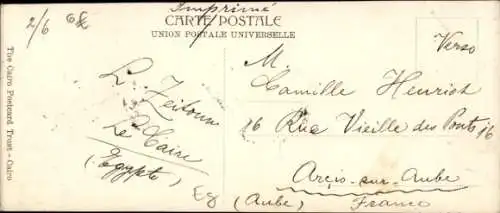 Imprimé
CARTE POSTALE
UNION POSTALE UNIVERSELLE
2/6
The Cairo Postcard Trust - Cairo
L. Zeitoun
Le Caire
(Egypte)
Verso
M.
Camille Henriot
16 Rue Vieille des Ponts 16
Arcis-sur-Aube
(Aube) France